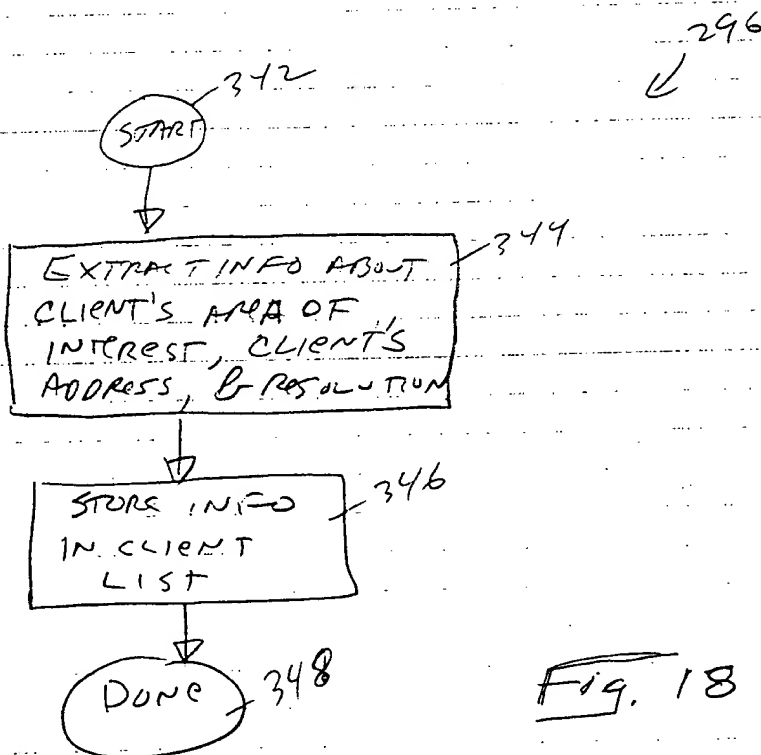 296
342
START
344
EXTRACT INFO ABOUT
CLIENT'S AREA OF
INTEREST, CLIENT'S
ADDRESS, & RESOLUTION
346
STORE INFO
IN CLIENT
LIST
DONE
348
Fig. 18